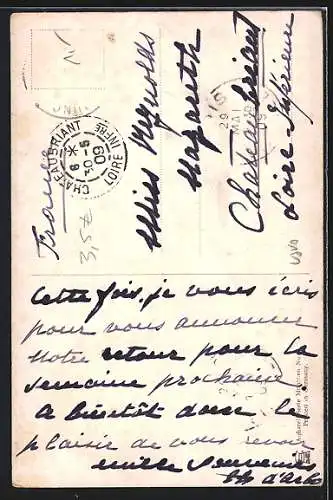 Miss Reynolds
Nazareth
Chateaubriant
Loire Inférieure
France
3,5€
CHATEAUBRIANT
LOIRE INFRE
29
MAI
09
Cette fois, je vous écris
pour vous annoncer
notre retour pour la
semaine prochaine
A bientôt donc le
plaisir de vous revoir
mille souvenirs